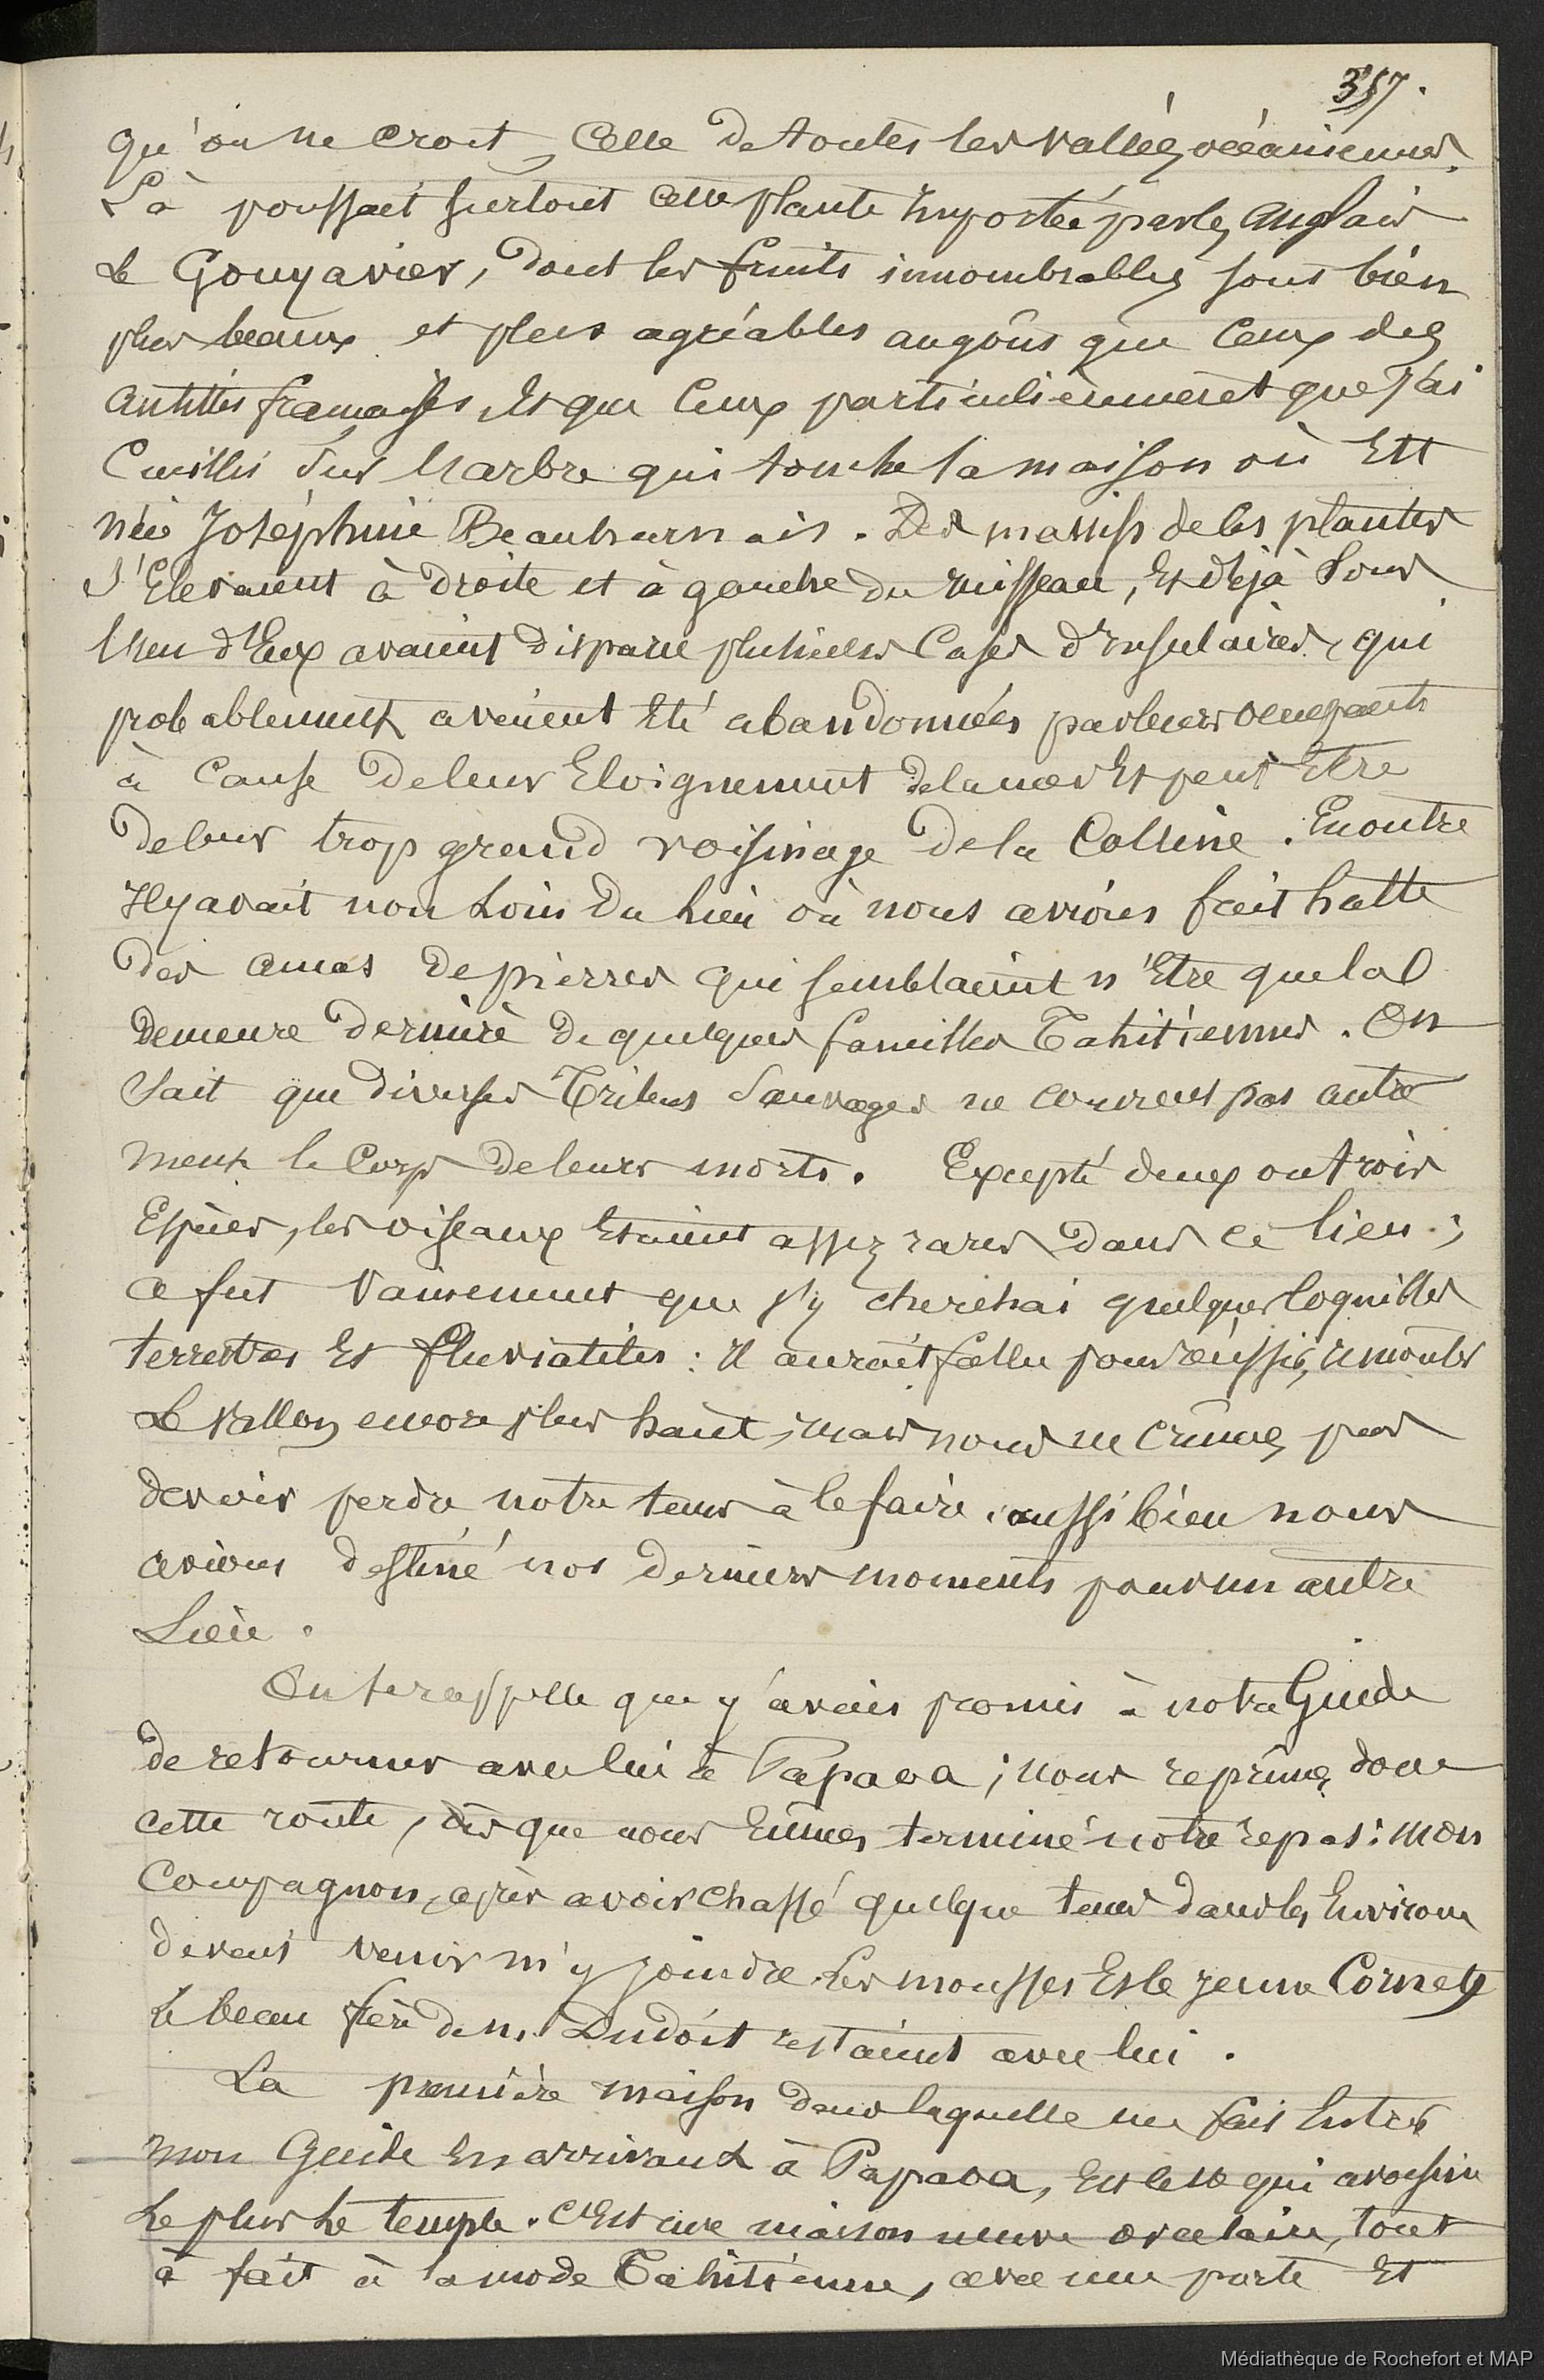 357.
qu'on ne croit, Celle de toutes les vallées océaniennes.
Là poussait surtout cette plante importée par les anglais
Le Gouyavier, dont les fruits innombrables sont bien
plus beaux et plus agréables au goût que Ceux des
antilles françaises, Et que Ceux particulièrement que J'ai
Cueillis sur l'arbre qui touche la maison où Est
née Joséphine Beauharnais. Des massifs de ces plantes
s'Elevaient à droite et à gauche du ruisseau, Et déjà sous
l'un d'Eux avaient disparu plusieurs Cases d'insulaires, qui
probablement avaient Eté abandonnées par leurs occupants
à Cause de leur Eloignement de la mer Et peut Etre
de leur trop grand voisinage de la Colline. En outre
Il y avait non Loin du lieu où nous avions fait halte
des amas de pierres qui semblaient n'Etre que la
demeure dernière de quelques familles Tahitiennes. On
sait que diverses Tribus sauvages ne couvrent pas autre
ment le Corps de leurs morts. Excepté deux ou trois
Espèces, les oiseaux Etaient assez rares dans ce lieu ;
ce fut vainement que j'y cherchai quelques Coquilles
terrestres Et fluviatiles : Il aurait fallu pour réussir, remonter
Le vallon encore plus haut, mais nous ne crûmes pas
devoir perdre notre tems à le faire, aussi bien nous
avions destiné nos derniers moments pour un autre
Lieu.
On se rappelle que j'avais promis à notre Guide
de retourner avec lui à Papaoa ; nous reprîmes donc
cette route, dès que nous Eûmes terminé notre repas : mon
Compagnon, après avoir chassé quelque tems dans les Environs
devait venir m'y joindre. Les mousses Et le jeune Cornet
Le beau frère de m. Dudoit restaient avec lui.
La première maison dans laquelle me fait Entrer
mon Guide En arrivant à Papaoa, Est celle qui avoisine
Le plus Le temple. C'Est une maison neuve ovalaire, tout
à fait à la mode Tahitienne, avec une porte Et
Médiathèque de Rochefort et MAP